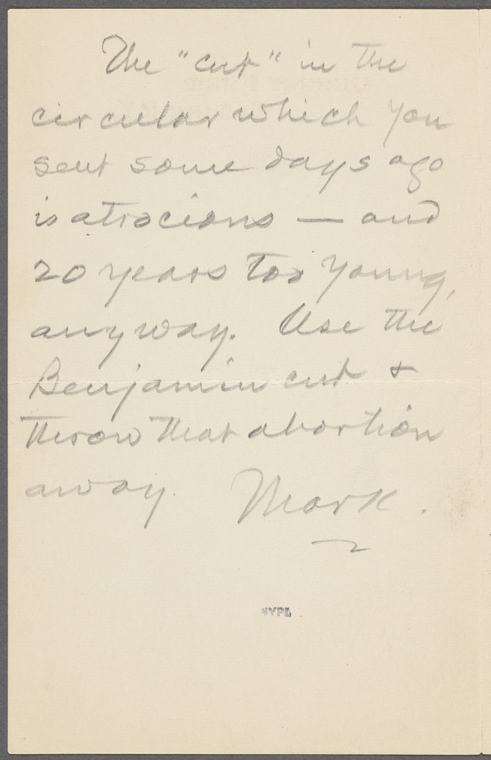 The "cut" in the
circular which you
sent some days ago
is atrocious — and
20 years too young,
anyway. Use the
Benjamin cut &
throw that abortion
away. Mark.
NYPL